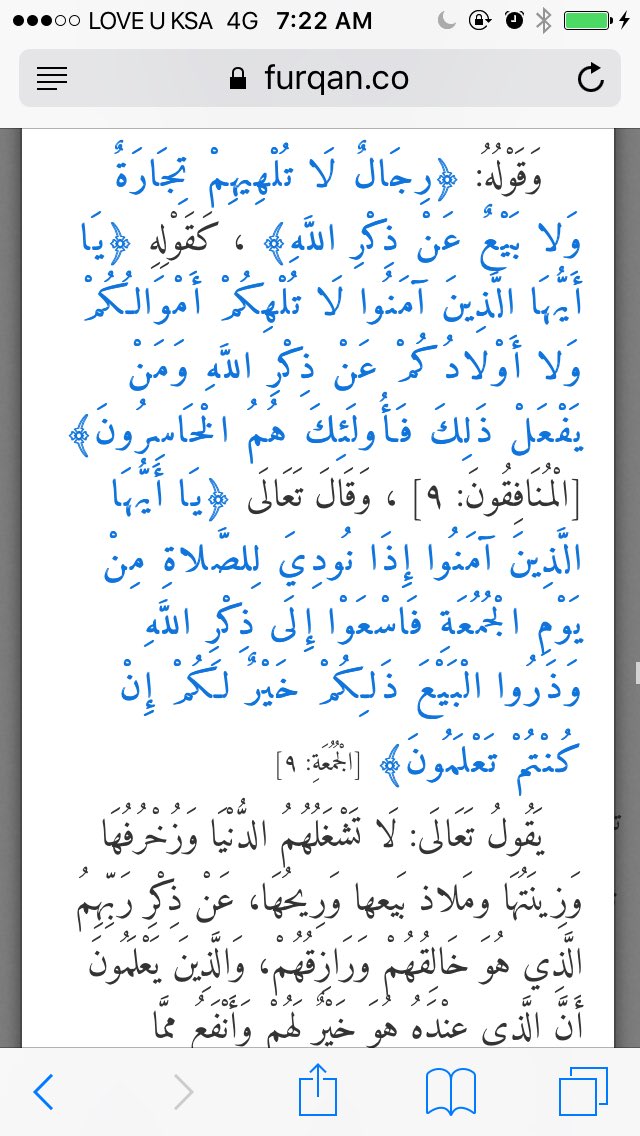 LOVE U KSA 4G 7:22 AM
furqan.co
وَقَوْلُهُ: ﴿رِجَالٌ لَا تُلْهِيهِمْ تِجَارَةٌ
وَلا بَيْعٌ عَنْ ذِكْرِ اللَّهِ﴾ ، كَقَوْلِهِ ﴿يَا
أَيُّهَا الَّذِينَ آمَنُوا لَا تُلْهِكُمْ أَمْوَالُكُمْ
وَلا أَوْلادُكُمْ عَنْ ذِكْرِ اللَّهِ وَمَنْ
يَفْعَلْ ذَلِكَ فَأُولَئِكَ هُمُ الْخَاسِرُونَ﴾
[الْمُنَافِقُونَ: ٩] ، وَقَالَ تَعَالَى ﴿يَا أَيُّهَا
الَّذِينَ آمَنُوا إِذَا نُودِيَ لِلصَّلاةِ مِنْ
يَوْمِ الْجُمُعَةِ فَاسْعَوْا إِلَى ذِكْرِ اللَّهِ
وَذَرُوا الْبَيْعَ ذَلِكُمْ خَيْرٌ لَكُمْ إِنْ
كُنْتُمْ تَعْلَمُونَ﴾ [الْجُمُعَةِ: ٩]
يَقُولُ تَعَالَى: لَا تَشْغَلُهُمُ الدُّنْيَا وَزُخْرُفُهَا
وَزِينَتُهَا ومَلاذ بَيعها وَرِيحُهَا، عَنْ ذِكْرِ رَبِّهِمُ
الَّذِي هُوَ خَالِقُهُمْ وَرَازِقُهُمْ، وَالَّذِينَ يَعْلَمُونَ
أَنَّ الَّذِي عِنْدَهُ هُوَ خَيْرٌ لَهُمْ وَأَنْفَعُ مِمَّا